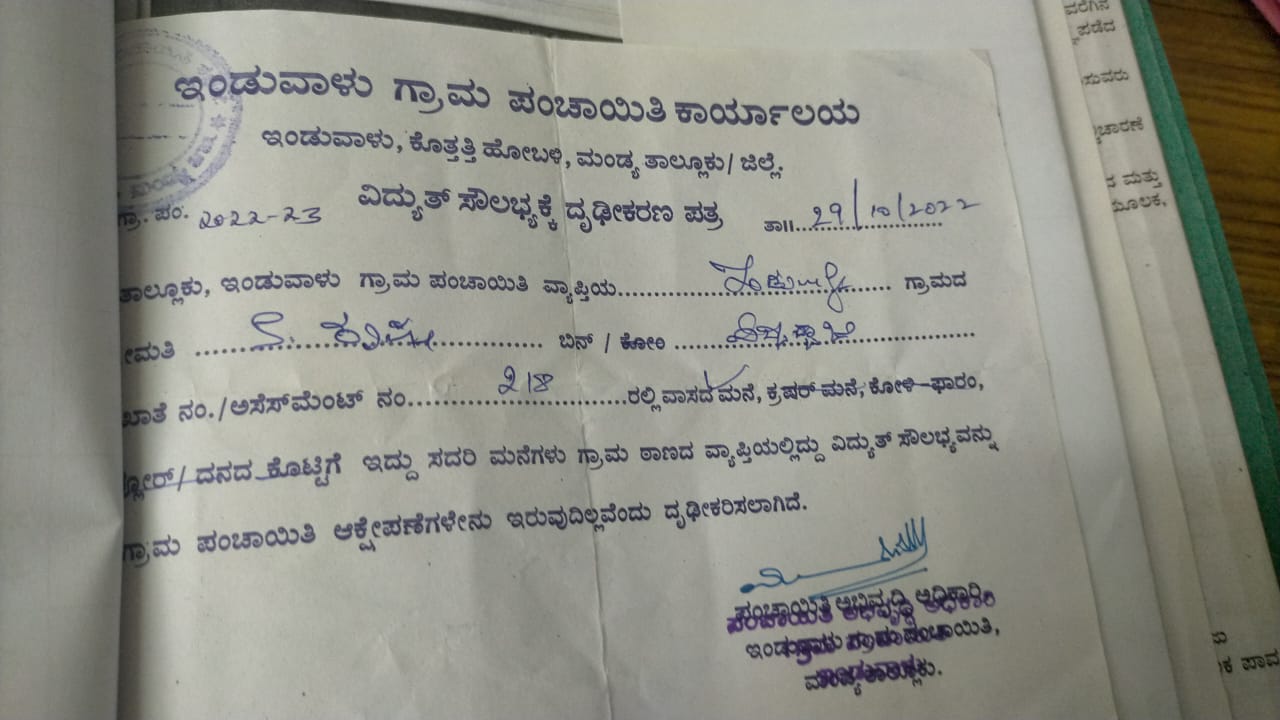 ಇಂಡುವಾಳು ಗ್ರಾಮ ಪಂಚಾಯಿತಿ ಕಾರ್ಯಾಲಯ
ಇಂಡುವಾಳು, ಕೊತ್ತತ್ತಿ ಹೋಬಳಿ, ಮಂಡ್ಯ ತಾಲ್ಲೂಕು/ ಜಿಲ್ಲೆ.
ವಿದ್ಯುತ್ ಸೌಲಭ್ಯಕ್ಕೆ ದೃಢೀಕರಣ ಪತ್ರ
ಗ್ರಾ. ಪಂ. 2022-23 ತಾ॥ 29/10/2022
ತಾಲ್ಲೂಕು, ಇಂಡುವಾಳು ಗ್ರಾಮ ಪಂಚಾಯಿತಿ ವ್ಯಾಪ್ತಿಯ.................... ಗ್ರಾಮದ
ೀಮತಿ .................... ಬಿನ್ / ಕೋಂ ....................
ಖಾತೆ ನಂ./ಅಸೆಸ್‌ಮೆಂಟ್ ನಂ......218......ರಲ್ಲಿ ವಾಸದ ಮನೆ, ಕ್ರಷರ್ ಮನೆ, ಕೋಳಿ ಫಾರಂ,
ದನದ ಕೊಟ್ಟಿಗೆ ಇದ್ದು ಸದರಿ ಮನೆಗಳು ಗ್ರಾಮ ಠಾಣದ ವ್ಯಾಪ್ತಿಯಲ್ಲಿದ್ದು ವಿದ್ಯುತ್ ಸೌಲಭ್ಯವನ್ನು
ಗ್ರಾಮ ಪಂಚಾಯಿತಿ ಆಕ್ಷೇಪಣೆಗಳೇನು ಇರುವುದಿಲ್ಲವೆಂದು ದೃಢೀಕರಿಸಲಾಗಿದೆ.
ಪಂಚಾಯಿತಿ ಅಭಿವೃದ್ಧಿ ಅಧಿಕಾರಿ,
ಇಂಡುವಾಳು ಗ್ರಾಮ ಪಂಚಾಯಿತಿ,
ಮಂಡ್ಯ ತಾಲ್ಲೂಕು.
ಪಡೆದ
ಮತ್ತು
ಮೂಲಕ,